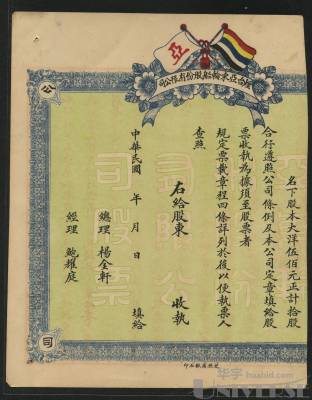 亞
陸合亞東輪船股份有限公司
公
名下股本大洋伍佰元正計拾股
合行遵照公司條例及本公司定章填給股
票收執為據須至股票者
規定票載章程四條詳列於後以便執票人
查照
右給股東 收執
中華民國 年 月 日 填給
總理 楊金軒
經理 鮑耀庭
司
司股票
華宇 huabid.com
UNIVERSE